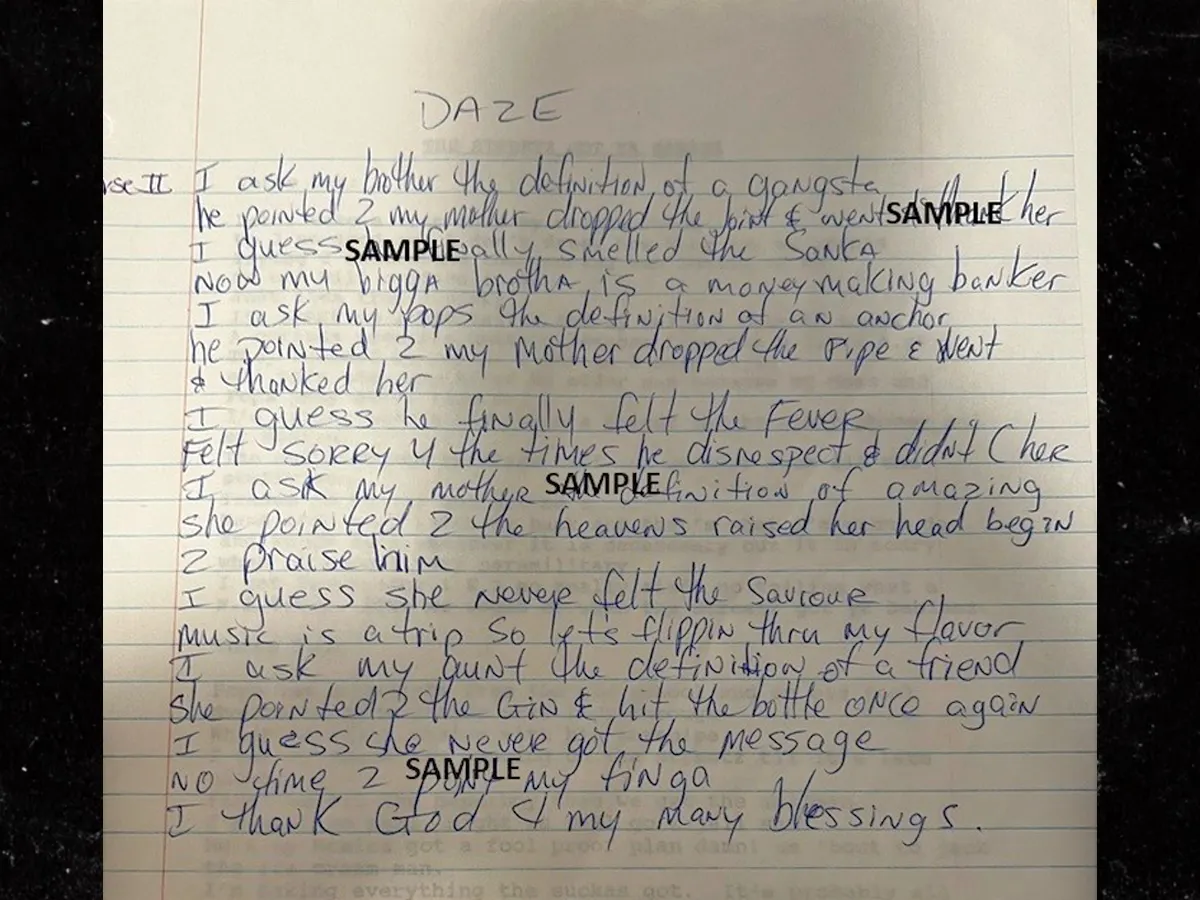 DAZE
rse II I ask my brother the definition of a gangsta
he pointed 2 my mother dropped the joint & went her
SAMPLE
I guess finally smelled the Sanka
SAMPLE
Now my bigga brotha is a moneymaking banker
I ask my pops the definition of an anchor
he pointed 2 my Mother dropped the Pipe & went
& thanked her
I guess he finally felt the Fever
Felt sorry 4 the times he disrespect & didn't C her
I ask my mother definition of amazing
SAMPLE
she pointed 2 the heavens raised her head begin
2 praise him
I guess she never felt the Saviour
music is a trip so let's flippin thru my flavor
I ask my aunt the definition of a friend
She pointed 2 the Gin & hit the bottle once again
I guess she never got the message
NO time 2 my finga
SAMPLE
I thank God 4 my many blessings.